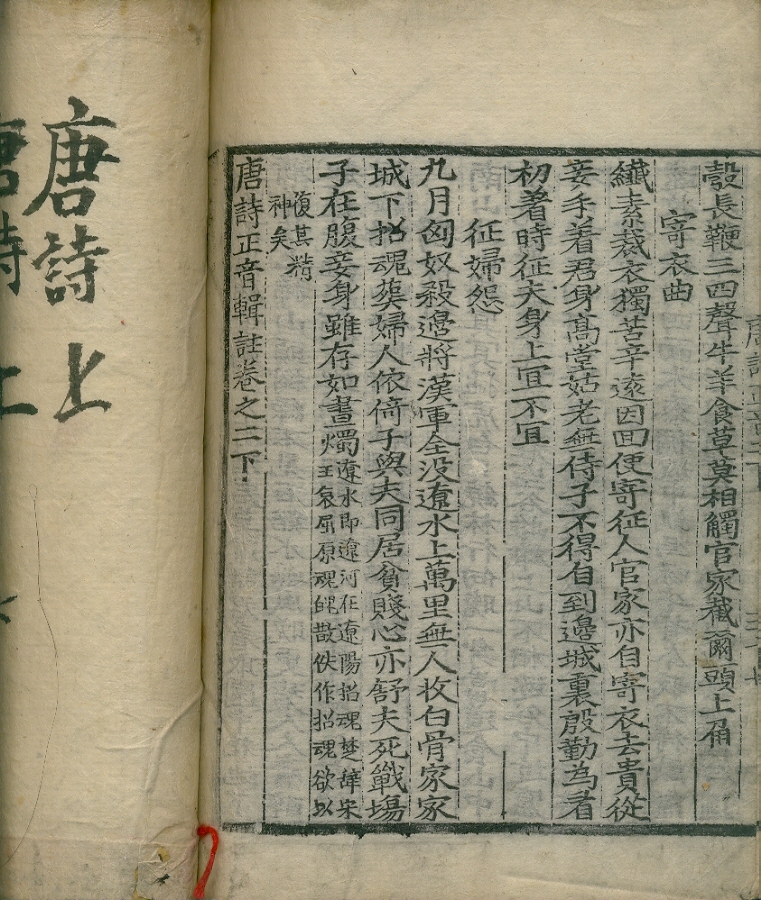 皷長鞭三四聲牛羊食草莫相觸官家截爾頭上角
寄衣曲
纎素裁衣獨苦辛遠因囬便寄征人官家亦自寄衣去貴從
妾手着君身髙堂姑老無侍子不得自到邊城裏殷勤為看
初着時征夫身上冝不冝
征婦怨
九月匈奴殺邊將漢軍全没遼水上萬里無人收白骨家家
城下招魂葬婦人依倚子與夫同居貧賤心亦舒夫死戰場
子在腹妾身雖存如晝燭
遼水即遼河在遼陽招魂楚辭宋
玉哀屈原魂魄散佚作招魂欲以
復其精
神矣
唐詩正音輯註卷之二下
唐詩上
唐詩上